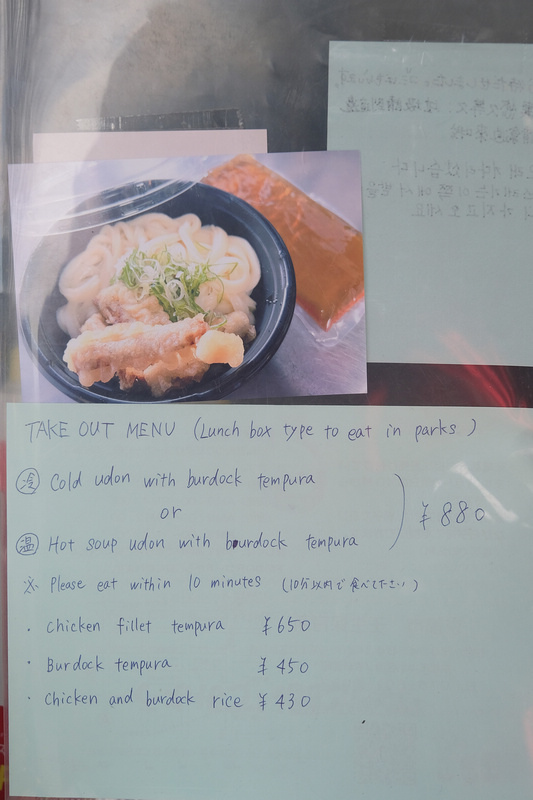 TAKE OUT MENU (Lunch box type to eat in parks)
冷 Cold udon with burdock tempura
or
¥880
温 Hot soup udon with bourdock tempura
※ Please eat within 10 minutes (10分以内で食べてください)
・ Chicken fillet tempura ¥650
・ Burdock tempura ¥450
・ Chicken and burdock rice ¥430